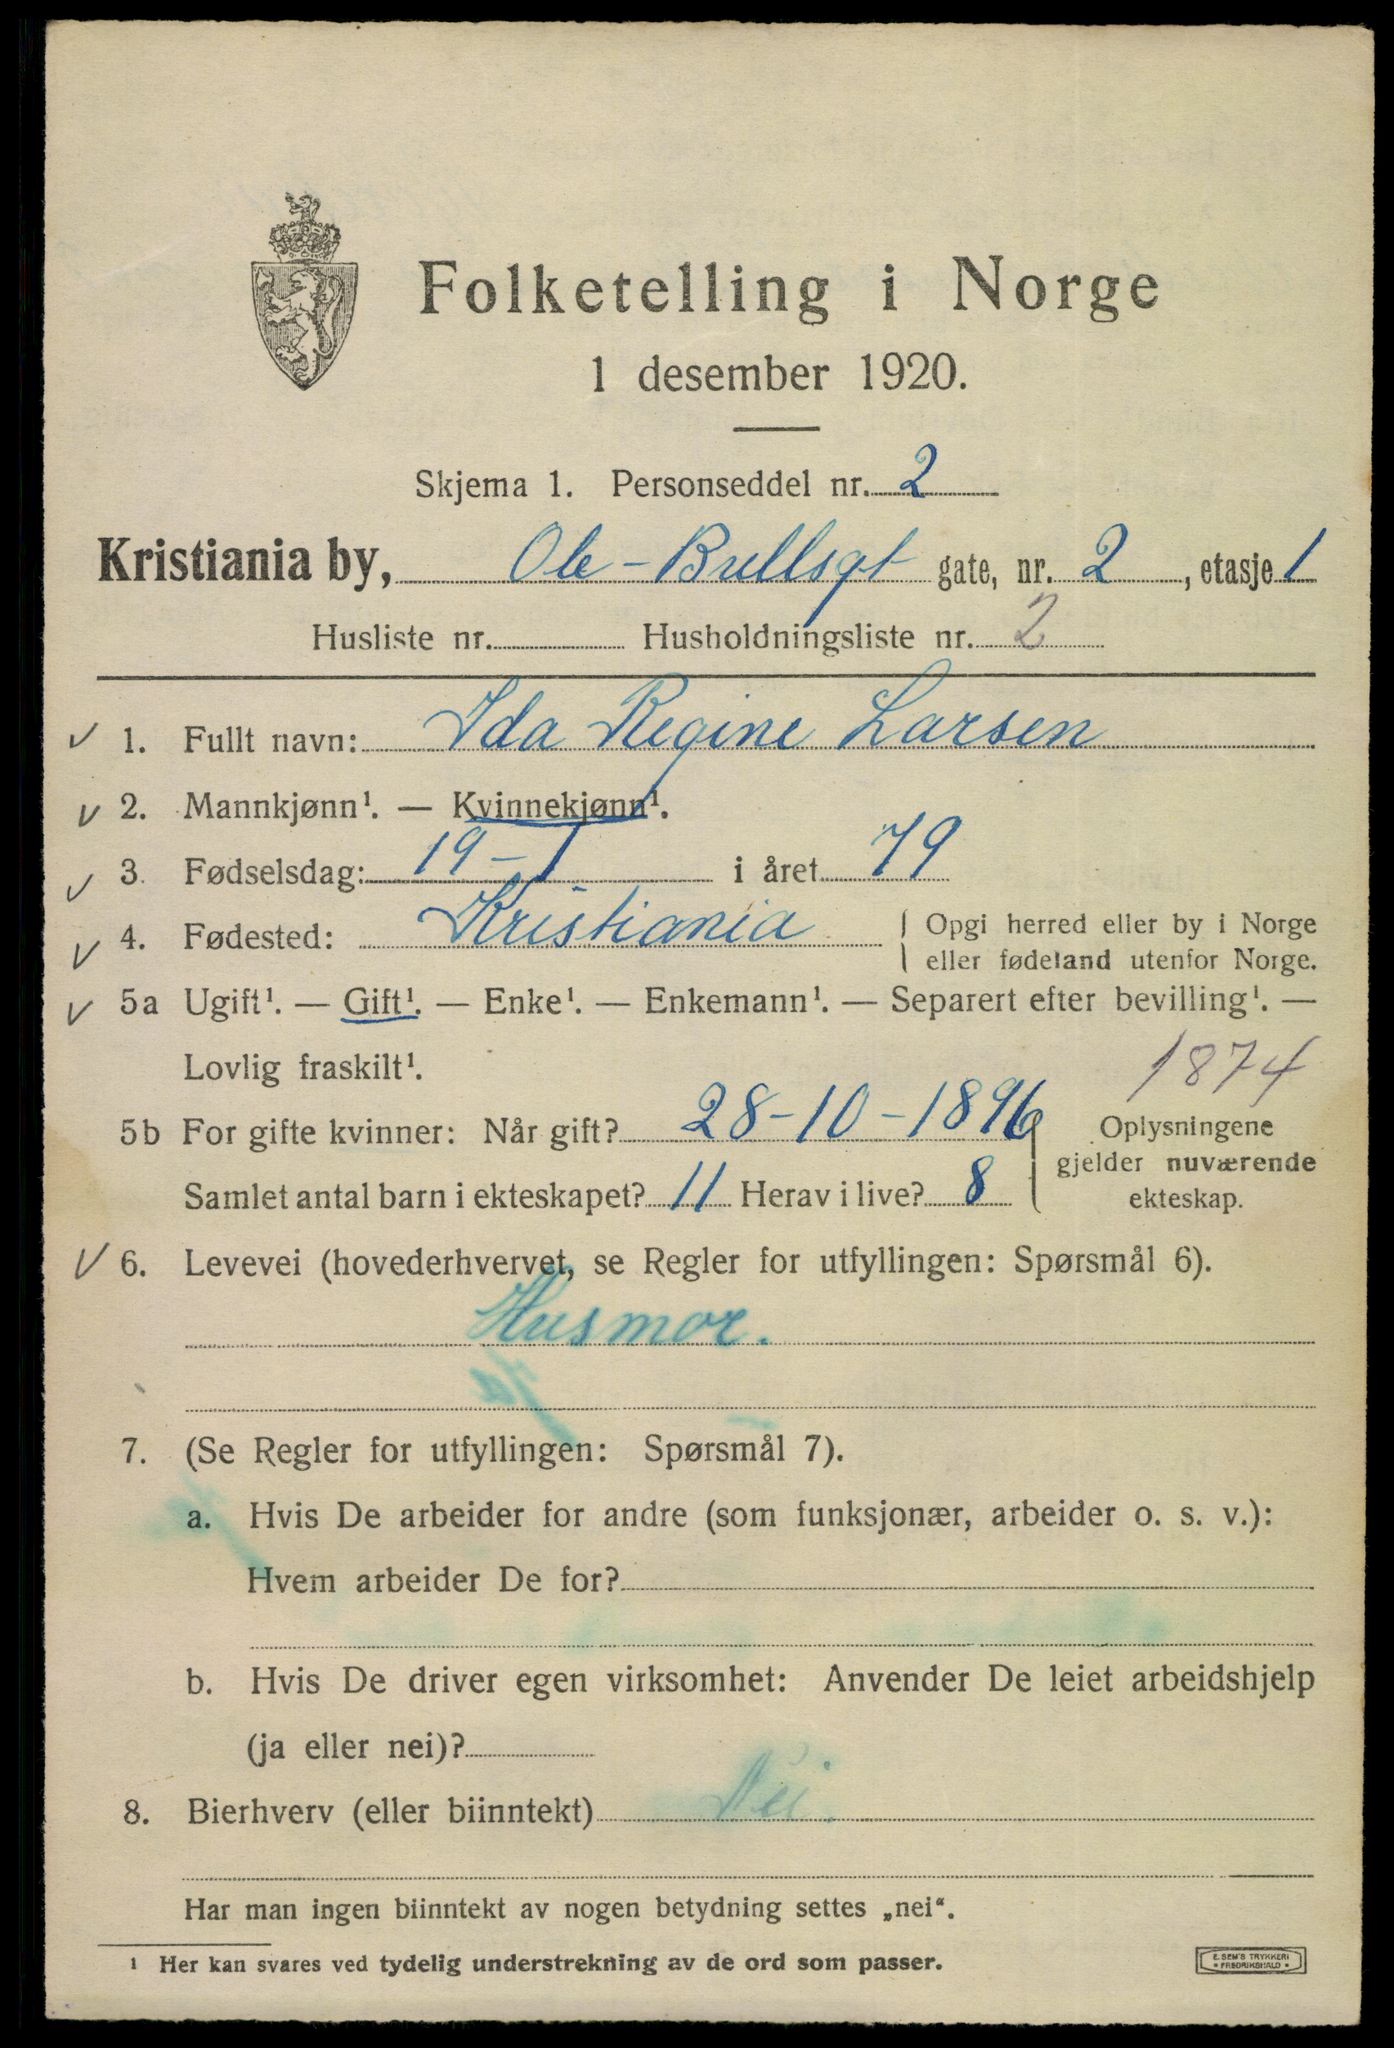 Folketelling i Norge
1 desember 1920.
Skjema 1. Personseddel nr. 2
Kristiania by, Ole-Bullsgt gate, nr. 2, etasje 1
Husliste nr. Husholdningsliste nr. 2
1. Fullt navn: Ida Regine Larsen
2. Mannkjønn¹. — Kvinnekjønn¹.
3. Fødselsdag: 19-1 i året 79
4. Fødested: Kristiania Opgi herred eller by i Norge
eller fødeland utenfor Norge.
5a Ugift¹. — Gift¹. — Enke¹. — Enkemann¹. — Separert efter bevilling¹. —
Lovlig fraskilt¹.
1874
5b For gifte kvinner: Når gift? 28-10-1896
Samlet antal barn i ekteskapet? 11 Herav i live? 8
Oplysningene
gjelder nuværende
ekteskap.
6. Levevei (hovederhvervet, se Regler for utfyllingen: Spørsmål 6).
Husmor.
7. (Se Regler for utfyllingen: Spørsmål 7).
a. Hvis De arbeider for andre (som funksjonær, arbeider o. s. v.):
Hvem arbeider De for?
b. Hvis De driver egen virksomhet: Anvender De leiet arbeidshjelp
(ja eller nei)?
8. Bierhverv (eller biinntekt) Nei.
Har man ingen biinntekt av nogen betydning settes „nei“.
¹ Her kan svares ved tydelig understrekning av de ord som passer.
E. SEM'S TRYKKERI
• FREDRIKSHALD •